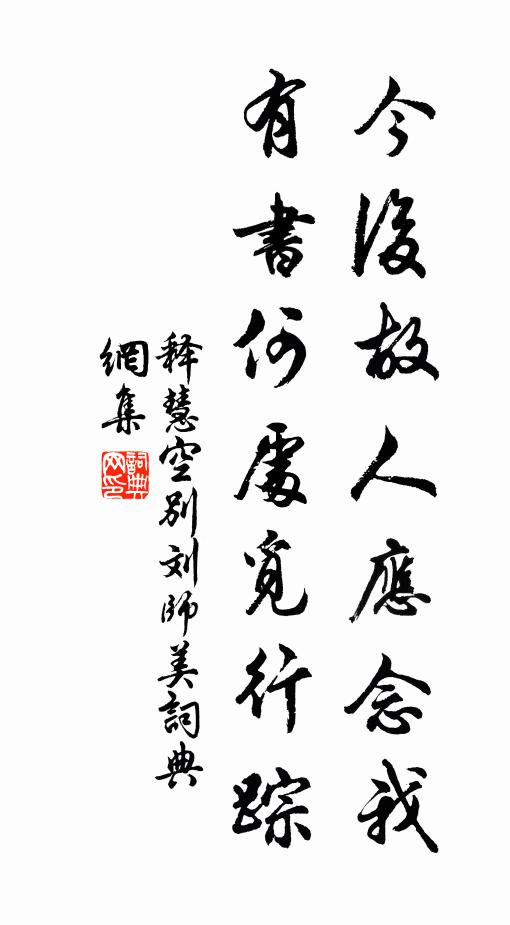 今後故人應念我
有書何處覓行踪
释慧空别刘師美詞典
網集
詞典
网印